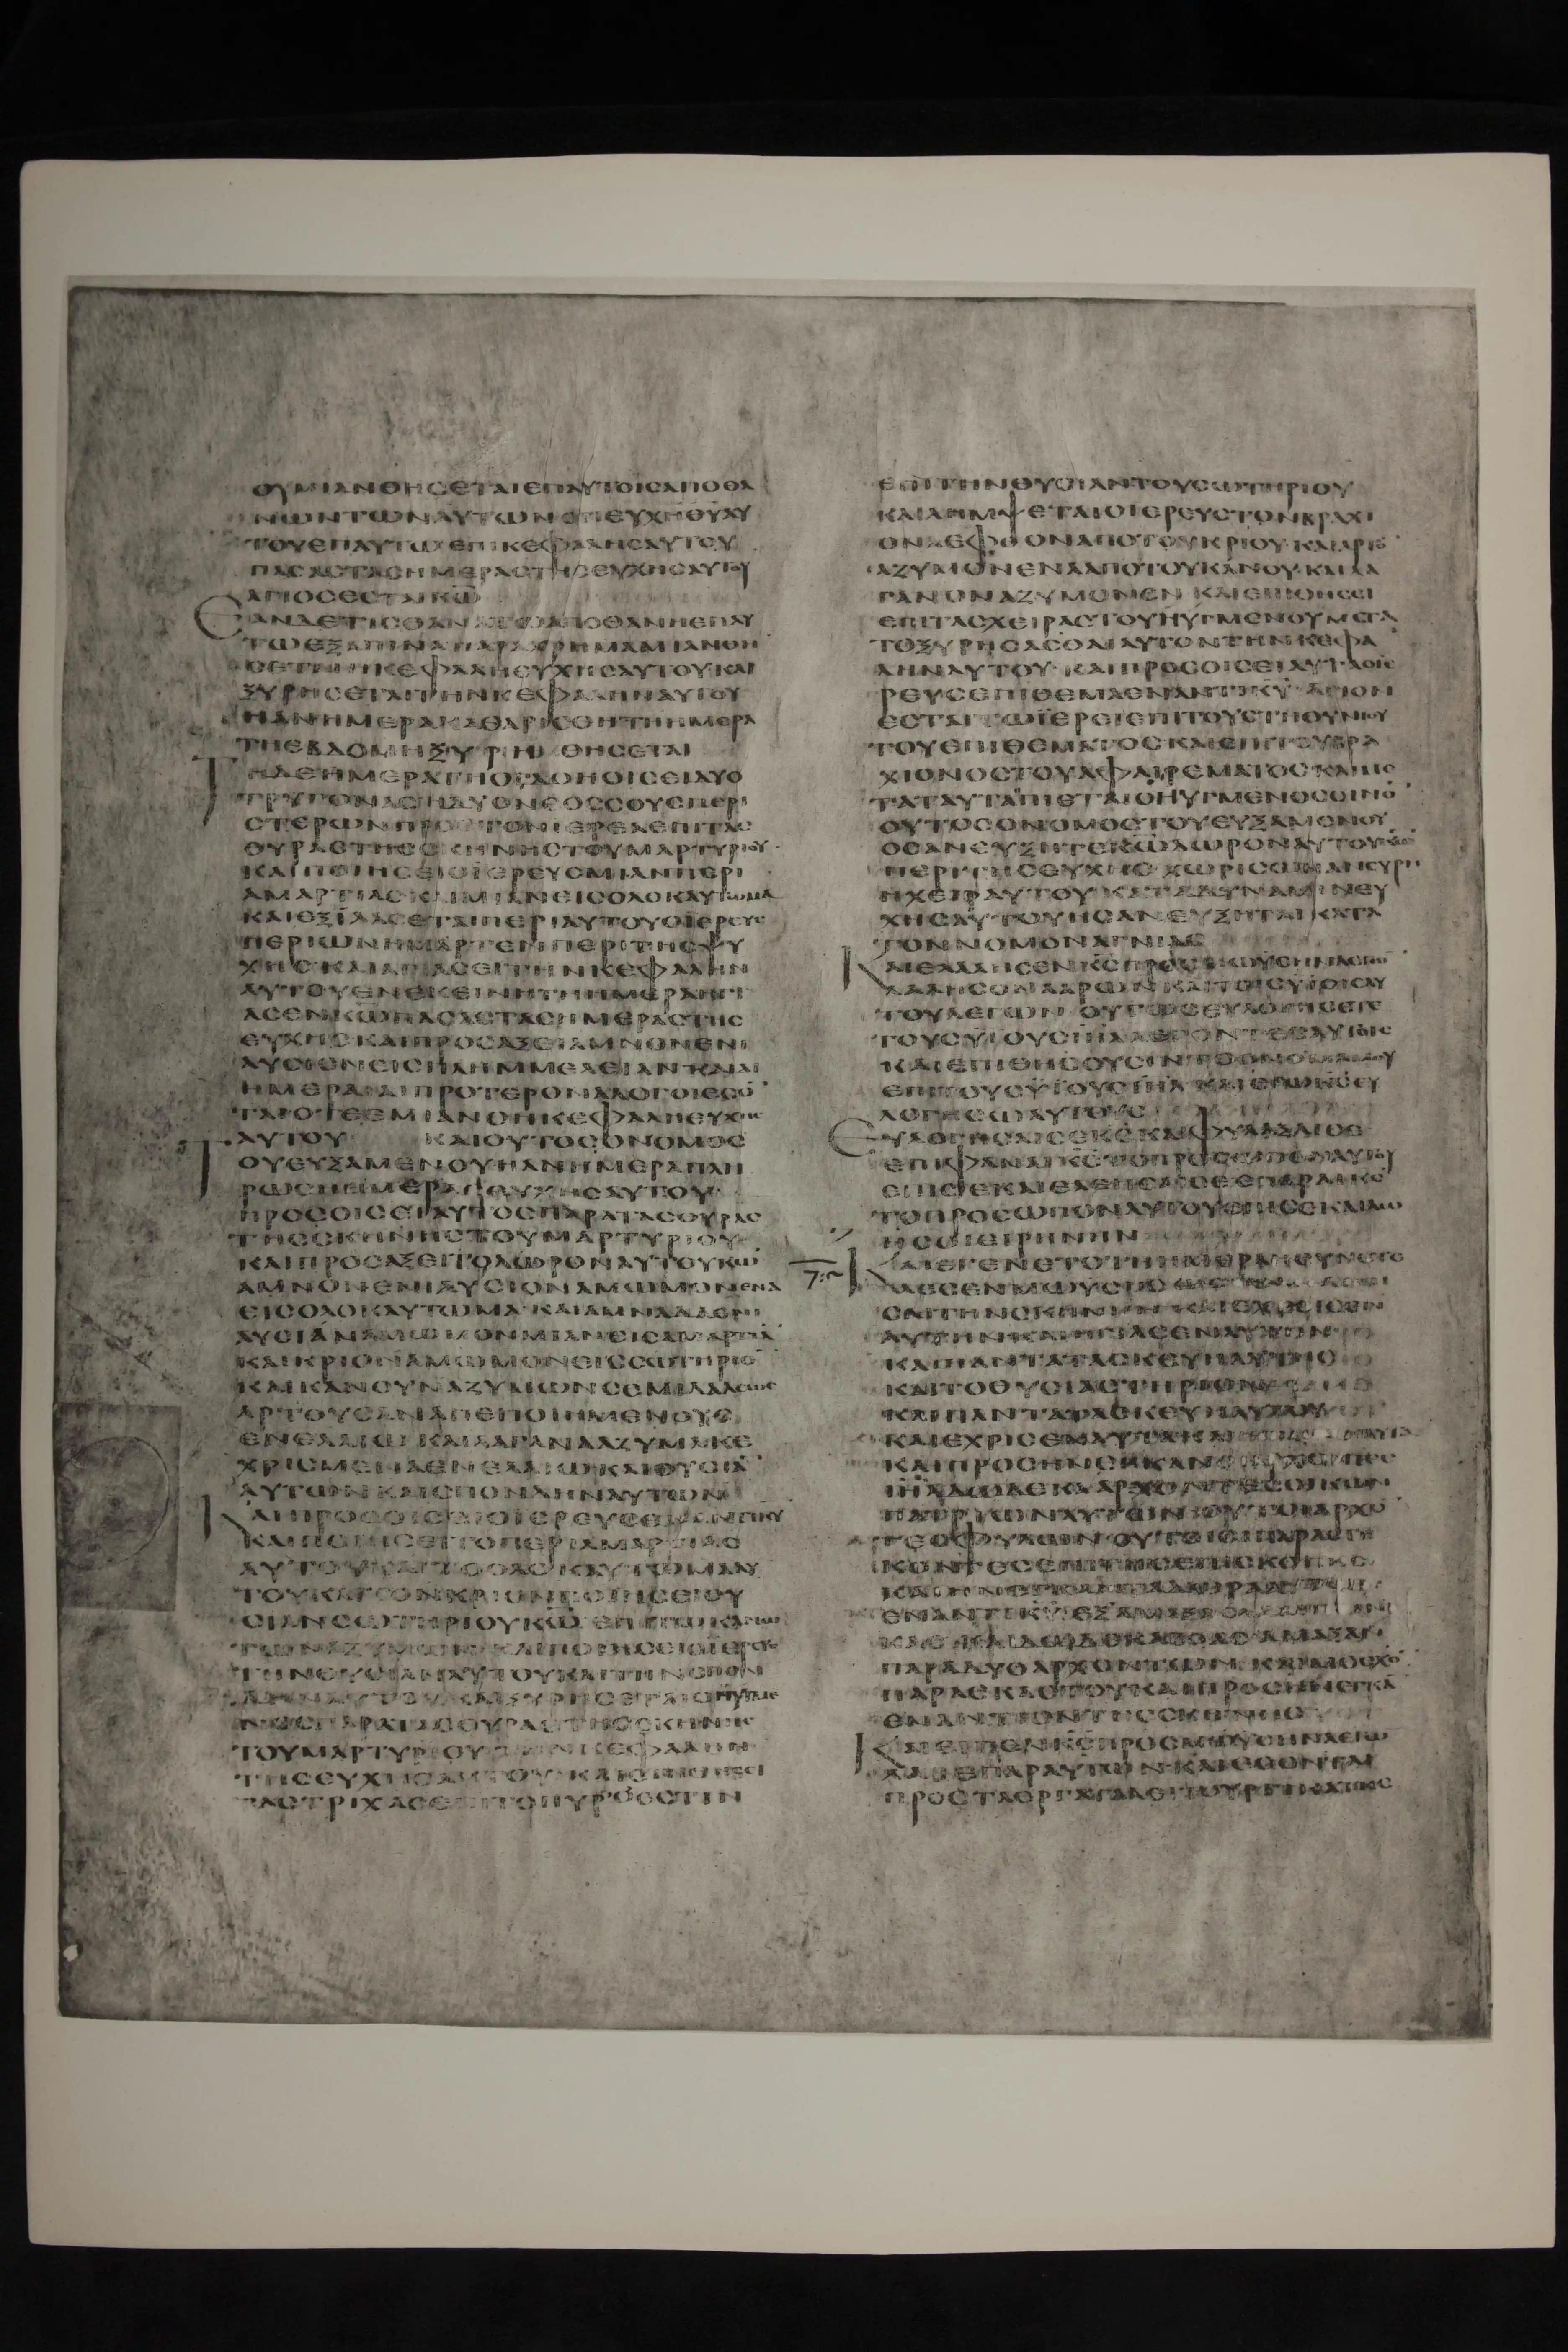 ΟΥΜΙΑΝΘΗCΕΤΑΙΕΠΑΥΤΟΙCΑΠΟΘΑ
ΝΩΝΤΩΝΑΥΤΩΝΟΤΙΕΥΧΗΘΥΑΥ
ΤΟΥΕΠΑΥΤΩΕΠΙΚΕΦΑΛΗCΑΥΤΟΥ
ΠΑCΑCΤΑCΗΜΕΡΑCΤΗCΕΥΧΗCΑΥΤΟΥ
ΑΓΙΟCΕCΤΑΙΚΩ
ΕΑΝΔΕΤΙC ΑΠΟΘΑΝΗΕΠΑΥ
ΤΩΕΞΑΠΙΝΑΠΑΡΑΧΡΗΜΑΜΙΑΝΘΗ
CΕΤΑΙΗΚΕΦΑΛΗΕΥΧΗCΑΥΤΟΥΚΑΙ
ΞΥΡΗCΕΤΑΙΤΗΝΚΕΦΑΛΗΝΑΥΤΟΥ
ΗΑΝΗΜΕΡΑΚΑΘΑΡΙCΘΗΤΗΗΜΕΡΑ
ΤΗΕΒΔΟΜΗΞΥΡΗΘΗCΕΤΑΙ
ΤΗΔΕΗΜΕΡΑΤΗΟΓΔΟΗΟΙCΕΙΔΥΟ
ΤΡΥΓΟΝΑCΗΔΥΟΝΕΟCCΟΥCΠΕΡΙ
CΤΕΡΩΝΠΡΟCΤΟΝΙΕΡΕΑΕΠΙΤΑC
ΘΥΡΑCΤΗCCΚΗΝΗCΤΟΥΜΑΡΤΥΡΙΟΥ
ΚΑΙΠΟΙΗCΕΙΟΙΕΡΕΥCΜΙΑΝΠΕΡΙ
ΑΜΑΡΤΙΑCΚΑΙΜΙΑΝΕΙCΟΛΟΚΑΥΤΩΜΑ
ΚΑΙΕΞΙΛΑCΕΤΑΙΠΕΡΙΑΥΤΟΥΟΙΕΡΕΥC
ΠΕΡΙΩΝΗΜΑΡΤΕΝΠΕΡΙΤΗCΨΥ
ΧΗCΚΑΙΑΓΙΑCΕΙΤΗΝΚΕΦΑΛΗΝ
ΑΥΤΟΥΕΝΕΚΕΙΝΗΤΗΗΜΕΡΑΗΓΙ
ΑCΕΝΚΩΠΑCΑCΤΑCΗΜΕΡΑCΤΗC
ΕΥΧΗCΚΑΙΠΡΟCΑΞΕΙΑΜΝΟΝΕΝΙ
ΑΥCΙΟΝΕΙCΠΛΗΜΜΕΛΕΙΑΝΚΑΙΑΙ
ΗΜΕΡΑΙΑΙΠΡΟΤΕΡΟΝΑΛΟΓΟΙΕCΟ
ΤΑΙΟΤΙΕΜΙΑΝΘΗΚΕΦΑΛΗΕΥΧΗC
ΑΥΤΟΥ ΚΑΙΟΥΤΟCΟΝΟΜΟC
ΤΟΥΕΥΞΑΜΕΝΟΥΗΑΝΗΜΕΡΑΠΛΗ
ΡΩCΗΗΜΕΡΑCΕΥΧΗCΑΥΤΟΥ
ΠΡΟCΟΙCΕΙΑΥΤΟCΠΑΡΑΤΑCΘΥΡΑC
ΤΗCCΚΗΝΗCΤΟΥΜΑΡΤΥΡΙΟΥ
ΚΑΙΠΡΟCΑΞΕΙΤΟΔΩΡΟΝΑΥΤΟΥΚΩ
ΑΜΝΟΝΕΝΙΑΥCΙΟΝΑΜΩΜΟΝΕΝΑ
ΕΙCΟΛΟΚΑΥΤΩΜΑΚΑΙΑΜΝΑΔΑΕΝΙ
ΑΥCΙΑΝΑΜΩΜΟΝΜΙΑΝΕΙCΑΜΑΡΤΙΑ
ΚΑΙΚΡΙΟΝΑΜΩΜΟΝΕΙCCΩΤΗΡΙΟ
ΚΑΙΚΑΝΟΥΝΑΖΥΜΩΝCΕΜΙΔΑΛΕΩC
ΑΡΤΟΥCΑΝΑΠΕΠΟΙΗΜΕΝΟΥC
ΕΝΕΛΑΙΩΚΑΙΛΑΓΑΝΑΑΖΥΜΑΚΕ
ΧΡΙCΜΕΝΑΕΝΕΛΑΙΩΚΑΙΘΥCΙΑ
ΑΥΤΩΝΚΑΙCΠΟΝΔΗΝΑΥΤΩΝ
ΚΑΙΠΡΟCΟΙCΕΙΟΙΕΡΕΥCΕΝΑΝΤΙΚΥ
ΚΑΙΠΟΙΗCΕΙΤΟΠΕΡΙΑΜΑΡΤΙΑC
ΑΥΤΟΥΚΑΙΤΟΟΛΟΚΑΥΤΩΜΑΑΥ
ΤΟΥΚΑΙΤΟΝΚΡΙΟΝΠΟΙΗCΕΙΘΥ
CΙΑΝCΩΤΗΡΙΟΥΚΩ ΕΠΙΤΩΚΑΝΩ
ΤΩΝΑΖΥΜΩΝΚΑΙΠΟΙΗCΕΙΟΙΕΡΕΥC
ΤΗΝΘΥCΙΑΝΑΥΤΟΥΚΑΙΤΗΝCΠΟΝ
ΔΗΝΑΥΤΟΥΚΑΙΞΥΡΗCΕΤΑΙΟΗΥΓΜΕ
ΝΟCΠΑΡΑΤΑCΘΥΡΑCΤΗCCΚΗΝΗC
ΤΟΥΜΑΡΤΥΡΙΟΥΤΗΝΚΕΦΑΛΗΝ
ΤΗCΕΥΧΗCΑΥΤΟΥΚΑΙΕΠΙΘΗCΕΙ
ΤΑCΤΡΙΧΑCΕΠΙΤΟΠΥΡΟΕCΤΙΝ
ΕΠΙΤΗΝΘΥCΙΑΝΤΟΥCΩΤΗΡΙΟΥ
ΚΑΙΛΗΜΨΕΤΑΙΟΙΕΡΕΥCΤΟΝΒΡΑΧΙ
ΟΝΑΕΦΘΟΝΑΠΟΤΟΥΚΡΙΟΥΚΑΙΑΡΤΟ
ΑΖΥΜΟΝΕΝΑΑΠΟΤΟΥΚΑΝΟΥΚΑΙΛΑ
ΓΑΝΟΝΑΖΥΜΟΝΕΝΚΑΙΕΠΙΘΗCΕΙ
ΕΠΙΤΑCΧΕΙΡΑCΤΟΥΗΥΓΜΕΝΟΥΜΕΤΑ
ΤΟΞΥΡΗCΑCΘΑΙΑΥΤΟΝΤΗΝΚΕΦΑ
ΛΗΝΑΥΤΟΥΚΑΙΠΡΟCΟΙCΕΙΑΥΤΑΟΙΕ
ΡΕΥCΕΠΙΘΕΜΑΕΝΑΝΤΙΚΥΑΓΙΟΝ
ΕCΤΑΙΤΩΙΕΡΕΙΕΠΙΤΟΥCΤΗΘΥΝΙΟΥ
ΤΟΥΕΠΙΘΕΜΑΤΟCΚΑΙΕΠΙΤΟΥΒΡΑ
ΧΙΟΝΟCΤΟΥΑΦΑΙΡΕΜΑΤΟCΚΑΙΜΕ
ΤΑΤΑΥΤΑΠΙΕΤΑΙΟΗΥΓΜΕΝΟCΟΙΝΟ
ΟΥΤΟCΟΝΟΜΟCΤΟΥΕΥΞΑΜΕΝΟΥ
ΟCΑΝΕΥΞΗΤΕΚΩΔΩΡΟΝΑΥΤΟΥΚΩ
ΠΕΡΙΤΗCΕΥΧΗCΧΩΡΙCΩΝΑΝΕΥΡΗ
ΗΧΕΙΡΑΥΤΟΥΚΑΤΑΔΥΝΑΜΙΝΕΥ
ΧΗCΑΥΤΟΥΗCΑΝΕΥΞΗΤΑΙΚΑΤΑ
ΤΟΝΝΟΜΟΝΑΓΝΙΑC
ΚΑΙΕΛΑΛΗCΕΝΚCΠΡΟCΜΩΥCΗΝΛΕΓΩ
ΛΑΛΗCΟΝΑΑΡΩΝΚΑΙΤΟΙCΥΙΟΙCΑΥ
ΤΟΥΛΕΓΩΝΟΥΤΩCΕΥΛΟΓΗCΕΤΕ
ΤΟΥCΥΙΟΥCΙΗΛΛΕΓΟΝΤΕCΑΥΤΟΙC
ΚΑΙΕΠΙΘΗCΟΥCΙΝΤΟΟΝΟΜΑΜΟΥ
ΕΠΙΤΟΥCΥΙΟΥCΙΗΛΚΑΙΕΓΩΚCΕΥ
ΛΟΓΗCΩΑΥΤΟΥC
ΕΥΛΟΓΗCΑΙCΕΚCΚΑΙΦΥΛΑΞΑΙCΕ
ΕΠΙΦΑΝΑΙΚCΤΟΠΡΟCΩΠΟΝΑΥΤΟΥ
ΕΠΙCΕΚΑΙΕΛΕΗCΑΙCΕΕΠΑΡΑΙΚC
ΤΟΠΡΟCΩΠΟΝΑΥΤΟΥΕΠΙCΕΚΑΙΔΩ
ΗCΟΙΕΙΡΗΝΗΝ
ΚΑΙΕΓΕΝΕΤΟΤΗΗΜΕΡΑΗCΥΝΕΤΕ
ΛΕCΕΝΜΩΥCΗC
CΑΙΤΗΝCΚΗΝΗΝΚΑΙΕΧΡΙCΕΝ
ΑΥΤΗΝΚΑΙΗΓΙΑCΕΝΑΥΤΗΝ
ΚΑΙΠΑΝΤΑΤΑCΚΕΥΗΑΥΤΗC
ΚΑΙΤΟΘΥCΙΑCΤΗΡΙΟΝ
ΚΑΙΠΑΝΤΑΤΑCΚΕΥΗΑΥΤΟΥ
ΚΑΙΕΧΡΙCΕΝΑΥΤΑΚΑΙ
ΚΑΙΠΡΟCΗΝΕΝΚΑΝΟΙΑΡΧΟΝΤΕC
ΙΗΛΔΩΔΕΚΑΑΡΧΟΝΤΕCΟΙΚΩΝ
ΠΑΤΡΙΩΝΑΥΤΩΝΟΥΤΟΙΑΡΧΟ
ΤΕCΦΥΛΩΝΟΥΤΟΙΟΙΠΑΡΕCΤΗ
ΚΟΝΤΕCΕΠΙΤΗCΕΠΙCΚΟΠΗC
ΕΝΑΝΤΙΚΥΕΞΑΜΑΞΑC
ΚΑΙΔΩΔΕΚΑΒΟΑCΑΜΑΞΑΝ
ΠΑΡΑΔΥΟΑΡΧΟΝΤΩΝΚΑΙΜΟCΧΟ
ΠΑΡΑΕΚΑCΤΟΥΚΑΙΠΡΟCΗΝΕΓΚΑ
ΕΝΑΝΤΙΟΝΤΗCCΚΗΝΗC
ΚΑΙΕΙΠΕΝΚCΠΡΟCΜΩΥCΗΝΛΕΓΩ
ΛΑΒΕΠΑΡΑΥΤΩΝΚΑΙΕCΟΝΤΑΙ
ΠΡΟCΤΑΕΡΓΑΤΑΛΕΙΤΟΥΡΓΙΚΑΤΗC